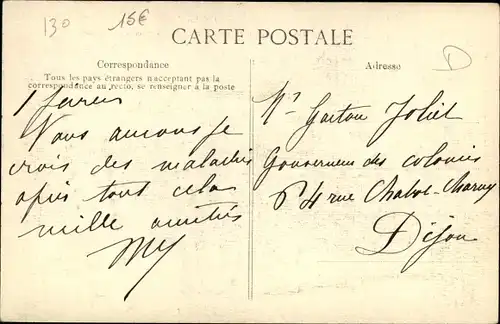 130
15€
CARTE POSTALE
D
Correspondance
Tous les pays étrangers n'acceptant pas la
correspondance au recto, se renseigner à la poste
Vous aurons je
crois des maladies
après tout cela
mille amitiés
Adresse
Mr Gaston Joliet
Gouverneur des colonies
64 rue Chabot-Charny
Dijon